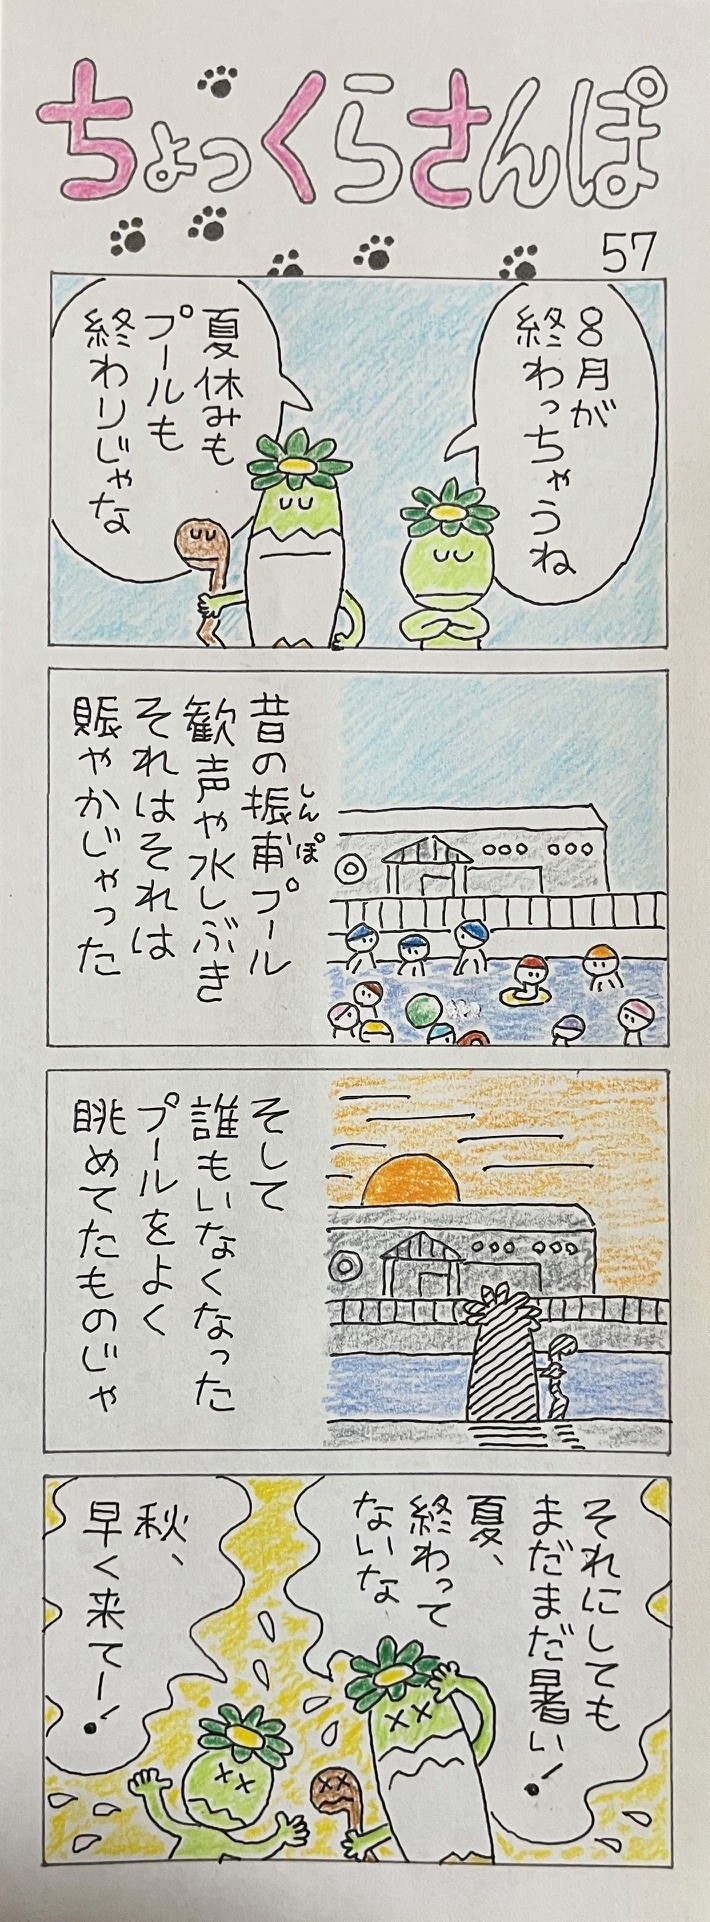 ちょっくらさんぽ
57
8月が
終わっちゃうね
夏休みも
プールも
終わりじゃな
昔の振甫プール
しんぽ
歓声や水しぶき
それはそれは
賑やかじゃった
そして
誰もいなくなった
プールをよく
眺めてたものじゃ
それにしても
まだまだ暑い!
夏、
終わって
ないな
秋、
早く来てー!